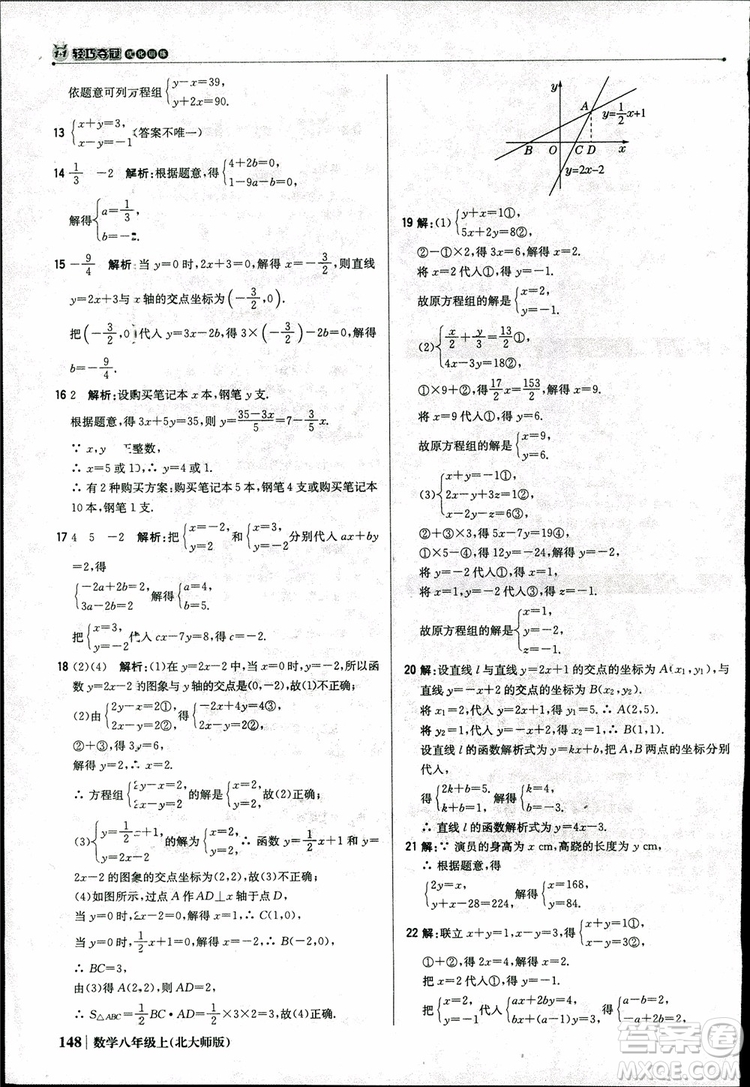 1+1 轻巧夺冠 优化训练
依题意可列方程组{y-x=39, y+2x=90.
13 {x+y=3, x-y=-1 (答案不唯一)
14 1/3 -2 解析:根据题意,得{4+2b=0, 1-9a-b=0,
解得{a=1/3, b=-2.
15 -9/4 解析:当y=0时,2x+3=0,解得x=-3/2,则直线
y=2x+3与x轴的交点坐标为(-3/2,0).
把(-3/2,0)代入y=3x-2b,得3×(-3/2)-2b=0,解得
b=-9/4.
16 2 解析:设购买笔记本x本,钢笔y支.
根据题意,得3x+5y=35,则y=(35-3x)/5=7-3/5x.
∵x,y 整数,
∴x=5或10.
∴有2种购买方案:购买笔记本5本,钢笔4支或笔记本
10本,钢笔1支.
17 4 5 -2 解析:把{x=-2, y=2和{x=3, y=-2分别代入ax+by
=2,得
{-2a+2b=2, 3a-2b=2, 解得{a=4, b=5.
把{x=3, y=-2代入cx-7y=8,得c=-2.
18 (2)(4) 解析:(1)在y=2x-2中,当x=0时,y=-2,所以函
数y=2x-2的图象与y轴的交点是(0,-2),故(1)不正确;
(2)由{2y-x=2①, 2x-y=2②,得{-2x+4y=4③, 2x-y=2②,
②+③,得3y=6,解得y=2,x=2.
∴方程组{2y-x=2, 2x-y=2的解是{x=2, y=2,故(2)正确;
(3)∵{y=1/2x+1, y=2x-2的解为{x=2, y=2,∴函数y=1/2x+1和y=
2x-2的图象的交点坐标为(2,2),故(3)不正确;
(4)如图所示,过点A作AD⊥x轴于点D,
当y=0时,2x-2=0,解得x=1,∴C(1,0).
当y=0时,1/2x+1=0,解得x=-2,∴B(-2,0).
∴BC=3,
由(3)得交点A(2,2),∴AD=2,
∴S△ABC=1/2BC·AD=1/2×3×2=3,故(4)正确.
148 数学八年级上(北大师版)
y
A
y=1/2x+1
B O C D x
y=2x-2
19 解:(1){y+x=1①, 5x+2y=8②,
②-①×2,得3x=6,解得x=2.
将x=2代入①,得y=-1.
故原方程组的解是{x=2, y=-1.
(2){x/2+y/3=13/2①, 
①×9+②,得17/2x=153/2,解得x=9.
将x=9代入①,得y=6.
故原方程组的解是{x=9, y=6.
(3){x+y=-1①, 2x-y+3z=1②, x-2y-z=6③,
②+③×3,得5x-7y=19④,
①×5-④,得12y=-24,解得y=-2.
将y=-2代入①,得x=1.
将x=1,y=-2代入③,得z=-1.
故原方程组的解是{x=1, y=-2, z=-1.
20 解:设直线l与直线y=2x+1的交点的坐标为A(x₁,y₁),与
直线y=-x+2的交点坐标为B(x₂,y₂).
将x₁=2,代入y=2x+1,得y₁=5,∴A(2,5).
将y₂=1,代入y=-x+2,得x₂=1,∴B(1,1).
设直线l的函数解析式为y=kx+b,把A,B两点的坐标分别
代入,
得{2k+b=5, k+b=1, 解得{k=4, b=-3.
∴直线l的函数解析式为y=4x-3.
21 解:∵演员的身高为x cm,高跷的长度为y cm,
∴根据题意,得
{2y=x, x+y-28=224, 解得{x=168, y=84.
22 解:联立x+y=1,得{x+y=1①, x-y=3②,
①+②,得2x=4,解得x=2.
把x=2代入①,得y=-1.
答案圈
MXQE.COM